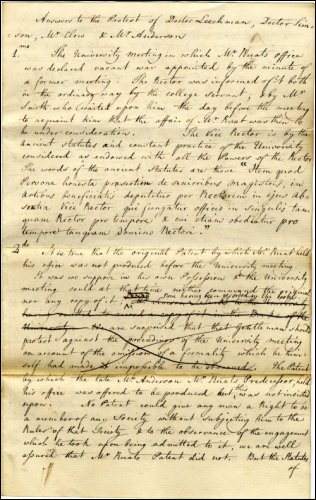 Answers to the Protest of Doctor Leechman, Doctor Sim-
son, Mr Clow & Mr Anderson
1mo
The University meeting in which Mr Ruats office
was declared vacant was appointed by the minute of
a former meeting. The Rector was informed of it both
in the ordinary way by the college servant, & by Mr
Smith who waited upon him the day before the meeting
to acquaint him that the affair of Mr Ruat was then to
be under consideration. The Vice Rector is by the
ancient statutes and constant practice of the University
considered as endowed with all the Powers of the Rector
The words of the ancient Statutes are these "Item quod
Persona honesta praesertim de senioribus Magistris, in
actibus beneficiatis deputetur per Rectorem in ejus Ab-
sentia Vice Rector qui fungatur officio in singulis tan
quam Rector pro tempore & cui etiam obediatur pro
tempore tanquam Domino Rectori."
2do
It is true that the original Patent by which Mr Ruat held
his office was not produced before the University meeting
It was we suppose in his own Possession & the University
meeting could at that time neither command the original
nor any copy of it
having omitted to send a copy of it
University We are surprised that that Gentleman should
protest against the proceedings of the University meeting
on account of the omission of a formality which he him-
self had made it impossible to be observed. The Patent
by which the late Mr Anderson Mr Ruats Predecessor, held
his office was offered to be produced but this was not insisted
upon. No Patent could give any man a Right to be
a member of any Society without subjecting him to the
Rules of that Society & to the observance of the engagements
which he took upon being admitted to it, we are well
assured that Mr Ruats Patent did not. But the Statutes
of